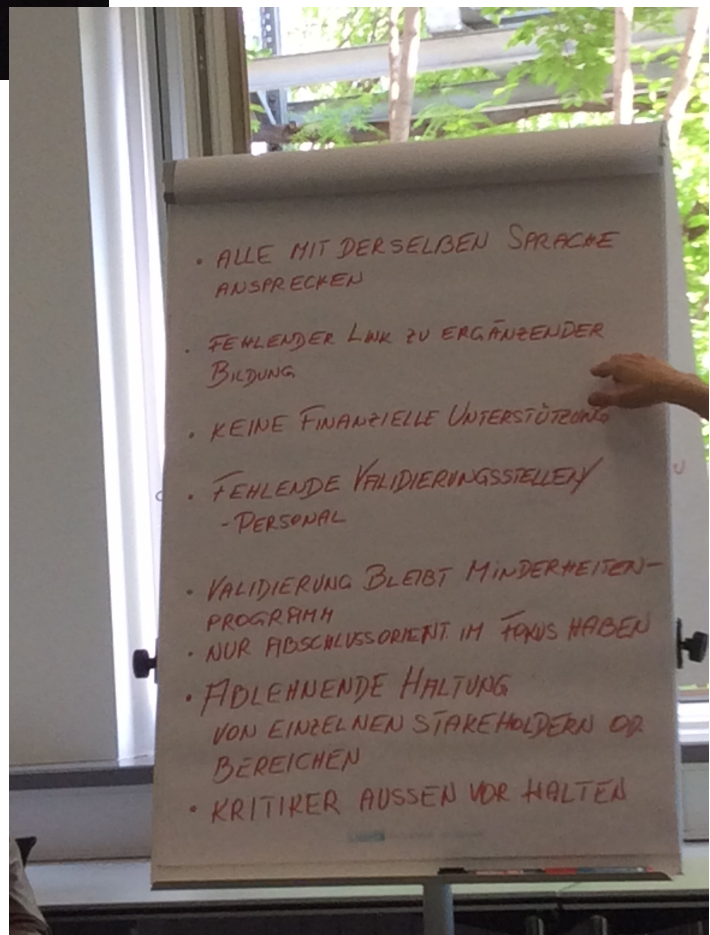 • ALLE MIT DERSELBEN SPRACHE
ANSPRECHEN
• FEHLENDER LINK ZU ERGÄNZENDER
BILDUNG
• KEINE FINANZIELLE UNTERSTÜTZUNG
• FEHLENDE VALIDIERUNGSSTELLEN/
-PERSONAL
• VALIDIERUNG BLEIBT MINDERHEITEN-
PROGRAMM
• NUR ABSCHLUSSORIENT IM FOKUS HABEN
• ABLEHNENDE HALTUNG
VON EINZELNEN STAKEHOLDERN OD
BEREICHEN
• KRITIKER AUSSEN VOR HALTEN